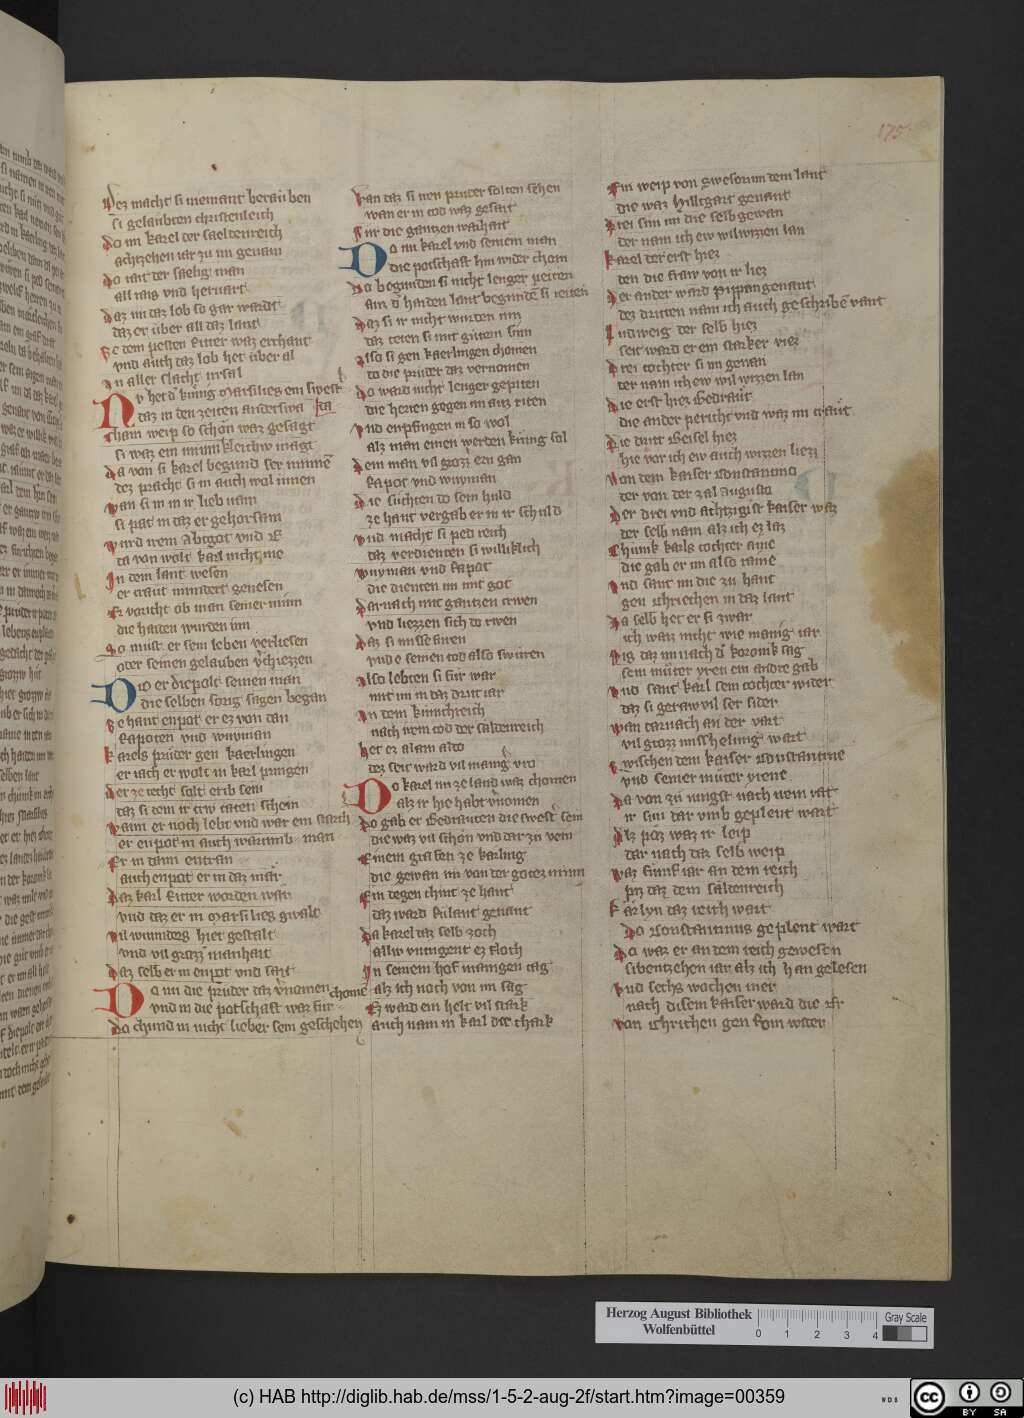 175
Dez macht si niemant berauben
si gelaubten christenleich
Do im karel der saeldenreich
achtzehen iar zu im genam
Do rait der saelig man
all rais vnd heruart
Daz im daz lob so gar wardt
daz er über all daz lant
Ze dem pesten Ritter waz erchant
vnd auch daz lob het über al
An aller slacht mesal
Nv het der künig Marsilies ein swester
daz in den zeiten anderswa
chain weip so schön waz gesagt
si waz ein minnikleichw magt
Da von si karel begund ser minnen
dez pracht si in auch wol innen
wan si im in ir lieb nam
si pat in daz er gehorsam
wurd irem Abtgot vnd Er
da von wolt karl nicht me
In dem lant wesen
er traut mindert genesen
Er voricht ob man seiner minn
die haiden wurden inn
So müst er sein leben verliesen
oder seinen gelauben verchiezzen
Do er diepolt seinen man
die selben sorig sagen began
Ze hant enpot er ez von dan
Rapoten vnd wnyman
karels prüder gen kaerlingen
er iach er wolt in karl pringen
Der ze recht solt erib sein
daz si dem ir trw taten schein
wann er noch lebt vnd war ein starch
er enpot in auch warumb man
Er in dann entran
auch enpot er in daz mär
Daz karl Ritter worden wär
vnd daz er in Marsilies gwalt
vil wunders hiet gestalt
vnd vil grozz manhait
Daz selb er in enpot vnd sait
Do nu die prüder daz vernomen
vnd in die potschaft waz für chomen
Do chund in nicht lieber sein geschehen
wan daz si iren prüder solten sehen
wan er in tod waz gesait
Für die gantzen warhait
Do nu karel vnd seinem man
die potschaft hin wider chom
Do begunden si nicht lenger peiten
auz der haiden lant begunden si reiten
Daz si ir nicht wurden inn
daz teten si mit gütem sinn
Also si gen kaerlingen chomen
do die prüder daz vernomen
Do ward nicht lenger gepiten
die herren gegen im auz riten
vnd enpfingen in so wol
alz man einen werden künig sol
Dem man vil grozz ern gan
Rapot vnd wnyman
Die suchten do sein huld
ze hant vergab er in ir schuld
vnd macht si ped reich
daz verdienten si williklich
wnyman vnd Rapot
die dienten im mit got
Darnach mit gantzen trwen
vnd liezzen sich do rwen
Daz si missefüren
vnd e seinen tod also swüren
Also lebten si für war
mit im in daz dritt iar
In dem künichreich
nach irem tod der saldenreich
Het ez alain alto
dez seit ward vil manig vro
Do karel im ze land waz chomen
alz ir hie habt vernomen
Do gab er Gedrauten die swest sein
die waz vil schön vnd dar zu vein
Einem grafen ze karling
die gewan im von der gotez minn
Ein degen chint ze hant
daz ward Rülant genant
Da karel daz selb zoch
alliv vntugent ez floch
In seinem hof manigen tag
alz ich noch von im sag
Ez ward ein helt vil stark
auch nam in karl der chark
Ein weip von Swesonun dem lant
die waz Hilltgart genant
Drei sün im die selb gewan
der nam ich ew wil wizzen lan
karel der erst hiez
den die fraw von ir liez
Der ander ward pippan genant
dez dritten nam ich auch geschriben vant
Ludweig der selb hiez
seit ward er ein starker riez
Drei tochter si im gewan
der nam ich ew wil wizzen lan
Die erst hiez Gedraut
die ander pericht vnd waz im traut
Die dritt Geisel hiez
hie vor ich ew auch wizzen liezz
von dem kaiser Constantino
der von der zal augusto
Der drei vnd achtzigist kaiser waz
der selb nam alz ich ez laz
Chünik karls tochter aine
die gab er im also raine
vnd sant im die zu hant
gen chriechen in daz lant
Da selb het er si zwar
ich waz nicht wie manig iar
Piz daz im nach der Kronik sag
sein müter yren ein andre gab
vnd sant karl sein tochter wider
daz si geraw vil ser sider
wan darnach an der vart
vil grozz misshelung wart
Zwischen dem kaiser Constantine
vnd seiner müter yrene
Da von zu iungst nach irem rat
ir sün dar vmb geplent wart
Alz plöz waz ir leip
dar nach daz selb weip
waz fünf iar an dem reich
piz daz dem säldenreich
karlyn daz reich wart
Do Constantinus geplent wart
Do waz er an dem reich gewesen
sibentzehen iar alz ich han gelesen
vnd sechs wochen mer
nach disem kaiser ward die Er
von chrichen gen Rom wider
Herzog August Bibliothek
Wolfenbüttel
0 1 2 3 4
Gray Scale
(c) HAB http://diglib.hab.de/mss/1-5-2-aug-2f/start.htm?image=00359
WDB
cc BY SA